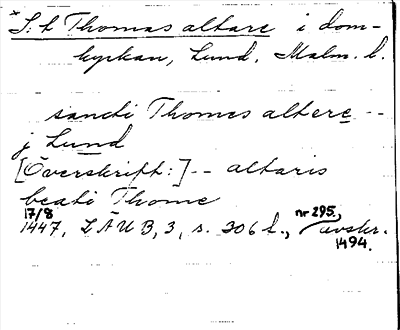 *S:t Thomas altare i dom-
kyrkan, Lund, Malm. l.
sancti Thomes altere --
j Lund
[Överskrift:] -- altaris
beati Thome
17/8
1447, LÄUB, 3, s. 306 f., nr 295, avskr.
1494.